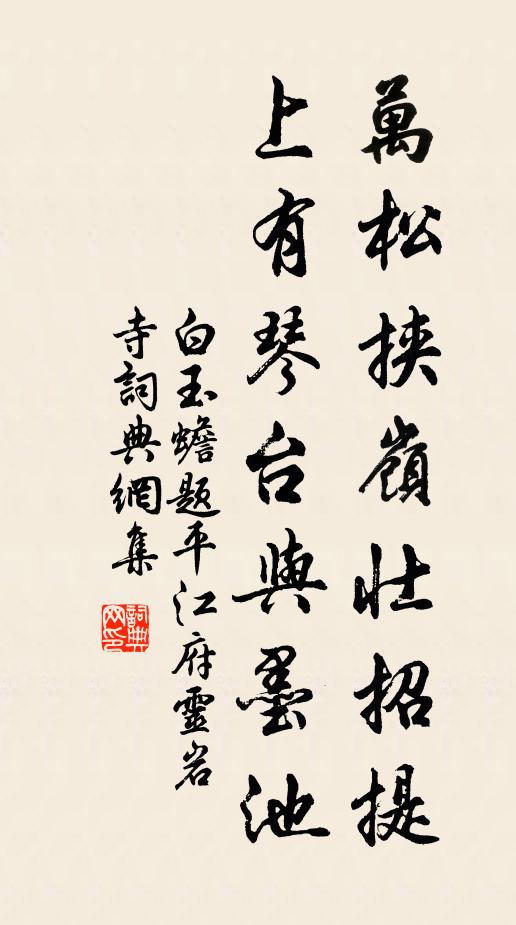 萬松挾嶺壯招提
上有琴台與墨池
白玉蟾題平江府靈岩
寺詞典網集
詞典
网印